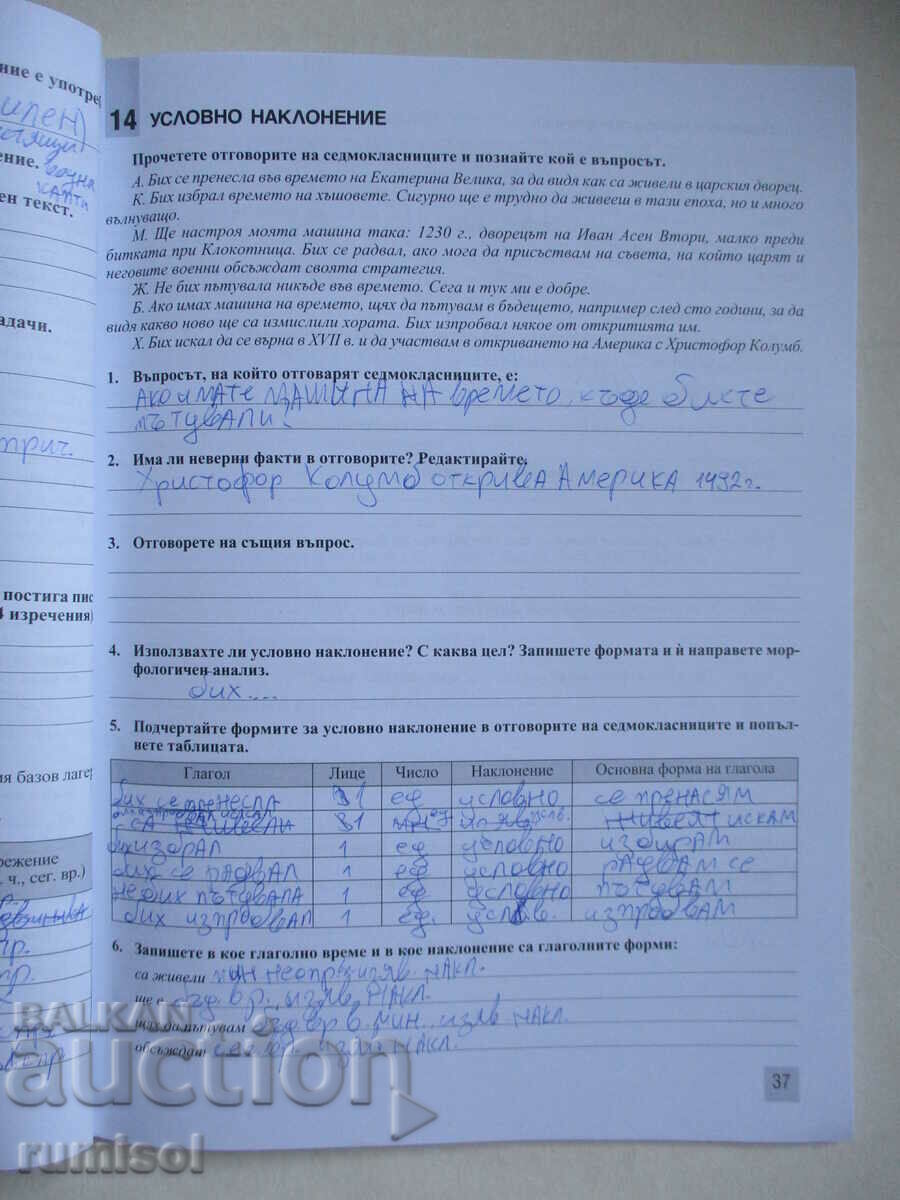 ние е употре
14 УСЛОВНО НАКЛОНЕНИЕ
ение.
ен текст.
адачи.
трич.
постига пис
4 изречения)
ия базов лаге
режение
. ч., сег. вр.)
Прочетете отговорите на седмокласниците и познайте кой е въпросът.
А. Бих се пренесла във времето на Екатерина Велика, за да видя как са живели в царския дворец.
К. Бих избрал времето на хъшовете. Сигурно ще е трудно да живееш в тази епоха, но и много
вълнуващо.
М. Ще настроя моята машина така: 1230 г., дворецът на Иван Асен Втори, малко преди
битката при Клокотница. Бих се радвал, ако мога да присъствам на съвета, на който царят и
неговите военни обсъждат своята стратегия.
Ж. Не бих пътувала никъде във времето. Сега и тук ми е добре.
Б. Ако имах машина на времето, щях да пътувам в бъдещето, например след сто години, за да
видя какво ново ще са измислили хората. Бих изпробвал някое от откритията им.
Х. Бих искал да се върна в XVII в. и да участвам в откриването на Америка с Христофор Колумб.
1. Въпросът, на който отговарят седмокласниците, е:
Ако имате машина на времето, къде бихте
пътували?
2. Има ли неверни факти в отговорите? Редактирайте.
Христофор Колумб открива Америка 1492 г.
3. Отговорете на същия въпрос.
4. Използвахте ли условно наклонение? С каква цел? Запишете формата и ѝ направете мор-
фологичен анализ.
бих....
5. Подчертайте формите за условно наклонение в отговорите на седмокласниците и попъл-
нете таблицата.
Глагол Лице Число Наклонение Основна форма на глагола
бих се пренесла 1 ед условно се пренасям
са живели 1 мн ед усл. живеят искам
бих избрал 1 ед условно избирам
бих се радвал 1 ед условно радвам се
не бих пътувала 1 ед условно пътувам
бих изпробвал 1 ед. условно. изпробвам
6. Запишете в кое глаголно време и в кое наклонение са глаголните форми:
са живели мин неопр изяв. накл.
ще е бъд. вр., изяв. накл.
щях да пътувам бъд вр в мин., изяв накл.
обсъждат сег. вр. изяв накл.
37
BALKAN
auction
rumisol